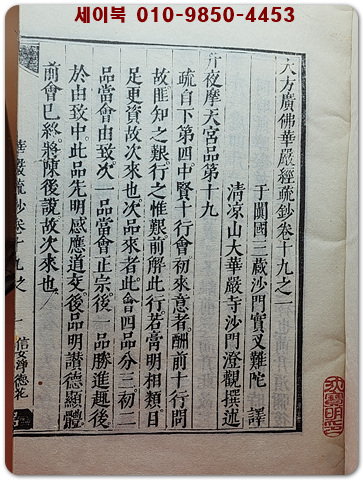 세이북 010-9850-4453
大方廣佛華嚴經疏鈔卷十九之一
于闐國三藏沙門實叉難陀 譯
清凉山大華嚴寺沙門澄觀撰述
升夜摩天宮品第十九
疏自下第四中賢十行會初來意者。酬前十行問
故匪知之艱。行之惟艱前解此行若膏明相類。目
足更資故次來也。次品來者此會四品分三初二
品當會由致。次一品當會正宗後一品勝進趣後。
於由致中此品先明感應道交。後品明讃德顯體
前會已終。將陳後說。故次來也
華嚴疏鈔卷十九之一
一
信女淨德花